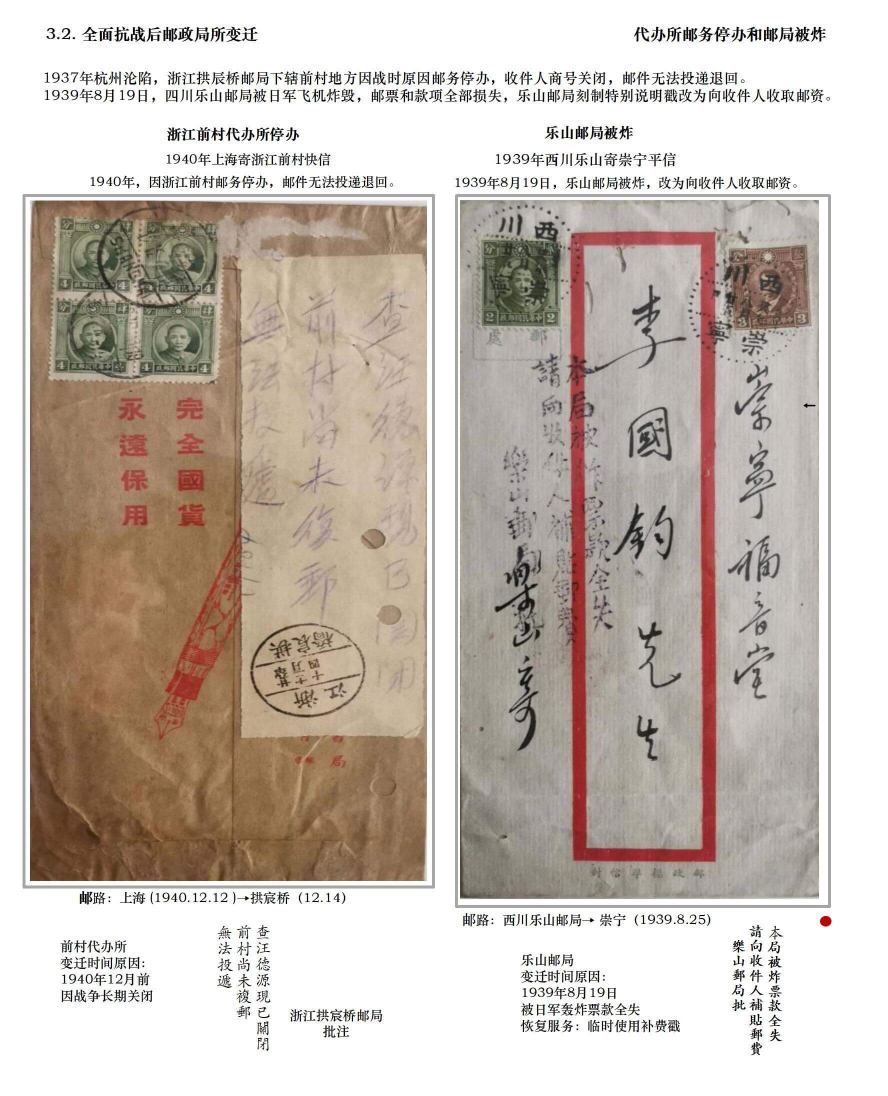 3.2. 全面抗战后邮政局所变迁
代办所邮务停办和邮局被炸
1937年杭州沦陷，浙江拱辰桥邮局下辖前村地方因战时原因邮务停办，收件人商号关闭，邮件无法投递退回。
1939年8月19日，四川乐山邮局被日军飞机炸毁，邮票和款项全部损失，乐山邮局刻制特别说明戳改为向收件人收取邮资。
浙江前村代办所停办
1940年上海寄浙江前村快信
1940年，因浙江前村邮务停办，邮件无法投递退回。
分
肆
4
4
4
4
查汪德源現已関閉
前村尚未復郵
無法投遞
完全國貨
永遠保用
浙江
十二月
十四
拱宸橋
局
邮路：上海 (1940.12.12 )→拱宸桥（12.14）
前村代办所
变迁时间原因：
1940年12月前
因战争长期关闭
查汪德源現已關閉
前村尚未複郵
無法投遞
浙江拱宸桥邮局
批注
乐山邮局被炸
1939年西川乐山寄崇宁平信
1939年8月19日，乐山邮局被炸，改为向收件人收取邮资。
西川
崇寧
2
2
西川
崇寧
3
郵
處
崇寧福音堂
李國鈞先生
本局被炸票款全失
請向收件人補貼郵費
樂山郵局
樂山寄
邮路：西川乐山邮局→ 崇宁（1939.8.25）
乐山邮局
变迁时间原因：
1939年8月19日
被日军轰炸票款全失
恢复服务：临时使用补费戳
本局被炸票款全失
請向收件人補貼郵費
樂山郵局批